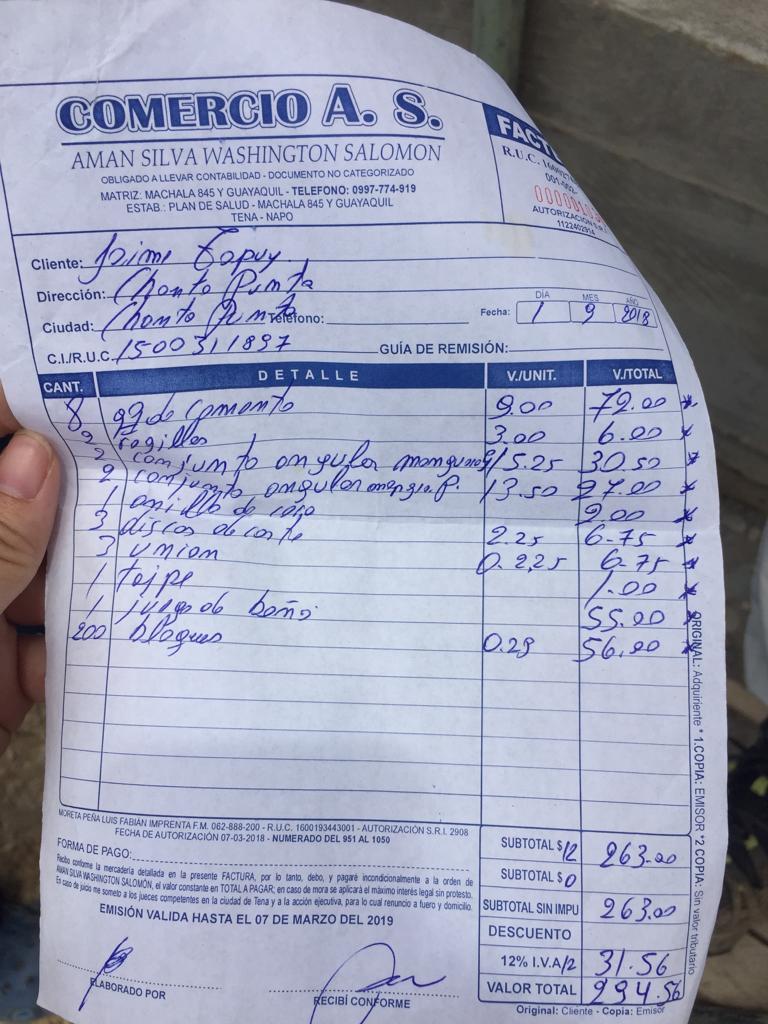 COMERCIO A. S.
AMAN SILVA WASHINGTON SALOMON
OBLIGADO A LLEVAR CONTABILIDAD - DOCUMENTO NO CATEGORIZADO
MATRIZ: MACHALA 845 Y GUAYAQUIL - TELEFONO: 0997-774-919
ESTAB.: PLAN DE SALUD - MACHALA 845 Y GUAYAQUIL
TENA - NAPO
R.U.C.
001-002-
AUTORIZACIÓN S.R.I.
1122402914
Cliente: Jaime Tapuy
Dirección: Chonta Punta
Ciudad: Chonta Punta Teléfono:
Fecha: DIA 1 MES 9 AÑO 2018
C.I./R.U.C. 1500311897 GUÍA DE REMISIÓN:
CANT. DETALLE V./UNIT. V./TOTAL
8 qq de cemento 9.00 72.00
2 3.00 6.00
2 conjunto angular 15.25 30.50
2 conjunto angular 13.50 27.00
1 anillo de 2.00
3 discos de corte 2.25 6.75
3 union 2.25 6.75
1 taipe 1.00
1 juego de baño 55.00
200 bloques 0.28 56.00
MORETA PEÑA LUIS FABIAN IMPRENTA F.M. 062-888-200 - R.U.C. 1600193443001 - AUTORIZACIÓN S.R.I. 2908
FECHA DE AUTORIZACIÓN 07-03-2018 - NUMERADO DEL 951 AL 1050
FORMA DE PAGO:
Recibo conforme la mercadería detallada en la presente FACTURA, por lo tanto, debo, y pagaré incondicionalmente a la orden de
AMAN SILVA WASHINGTON SALOMÓN, el valor constante en TOTAL A PAGAR; en caso de mora se aplicará el máximo interés legal sin protesto.
En caso de juicio me someto a los jueces competentes en la ciudad de Tena y a la acción ejecutiva, para lo cual renuncio a fuero y domicilio.
EMISIÓN VALIDA HASTA EL 07 DE MARZO DEL 2019
SUBTOTAL $ 12 263.00
SUBTOTAL $ 0
SUBTOTAL SIN IMPU 263.00
DESCUENTO
12% I.V.A 12 31.56
VALOR TOTAL 294.56
ELABORADO POR
RECIBÍ CONFORME
Original: Cliente - Copia: Emisor
ORIGINAL: Adquiriente * 1.COPIA: EMISOR *2 COPIA: Sin valor tributario